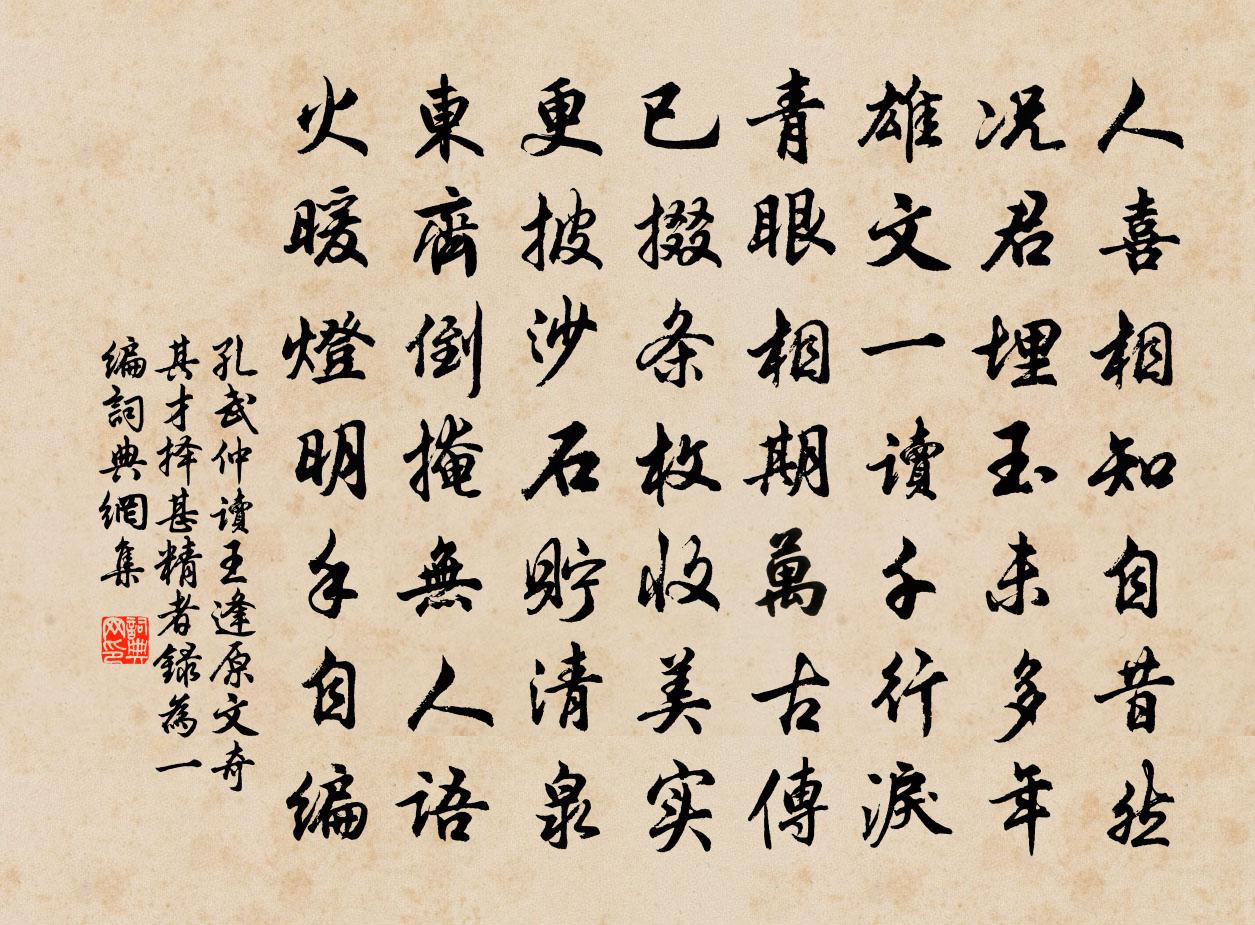 人喜相知自昔然
况君埋玉未多年
雄文一讀千行淚
青眼相期萬古傳
已掇条枚收美实
更披沙石貯清泉
東齊倒掩無人語
火暖燈明手自编
孔武仲讀王逢原文奇
其才择甚精者録為一
编詞典網集
詞典
网印